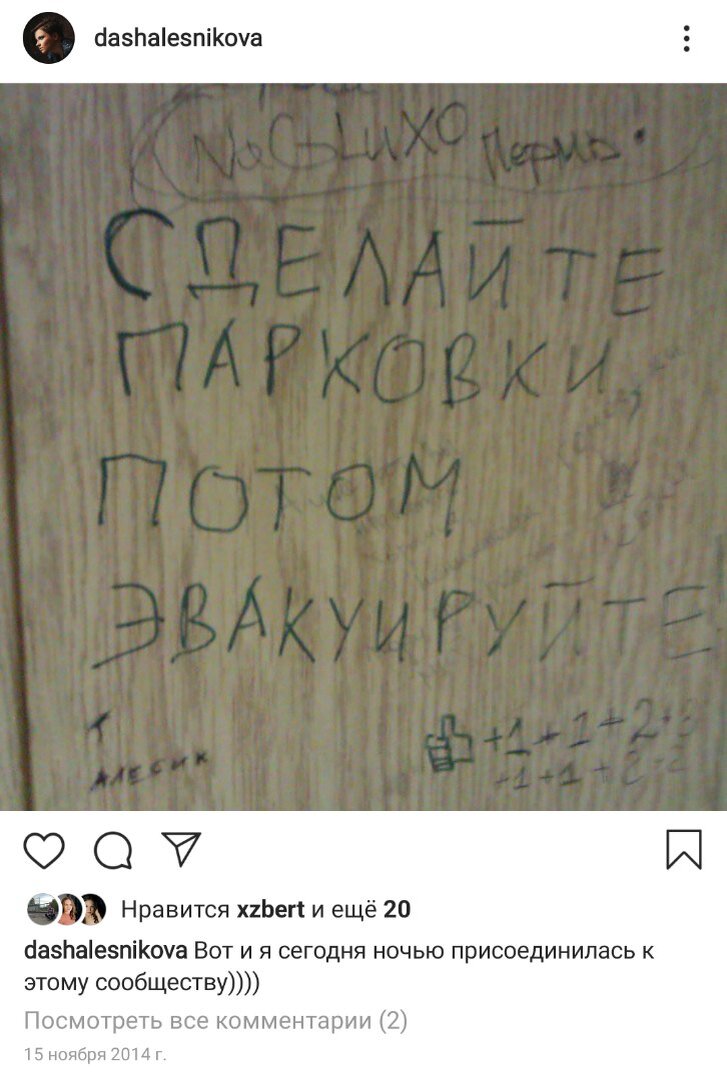 dashalesnikova
Пермь.
СДЕЛАЙТЕ
ПАРКОВКИ
ПОТОМ
ЭВАКУИРУЙТЕ
Т
АЛЕСИК
+1 +1 +2 +3
+1 +1 + 2 +2
Нравится xzbert и ещё 20
dashalesnikova Вот и я сегодня ночью присоединилась к
этому сообществу))))
Посмотреть все комментарии (2)
15 ноября 2014 г.